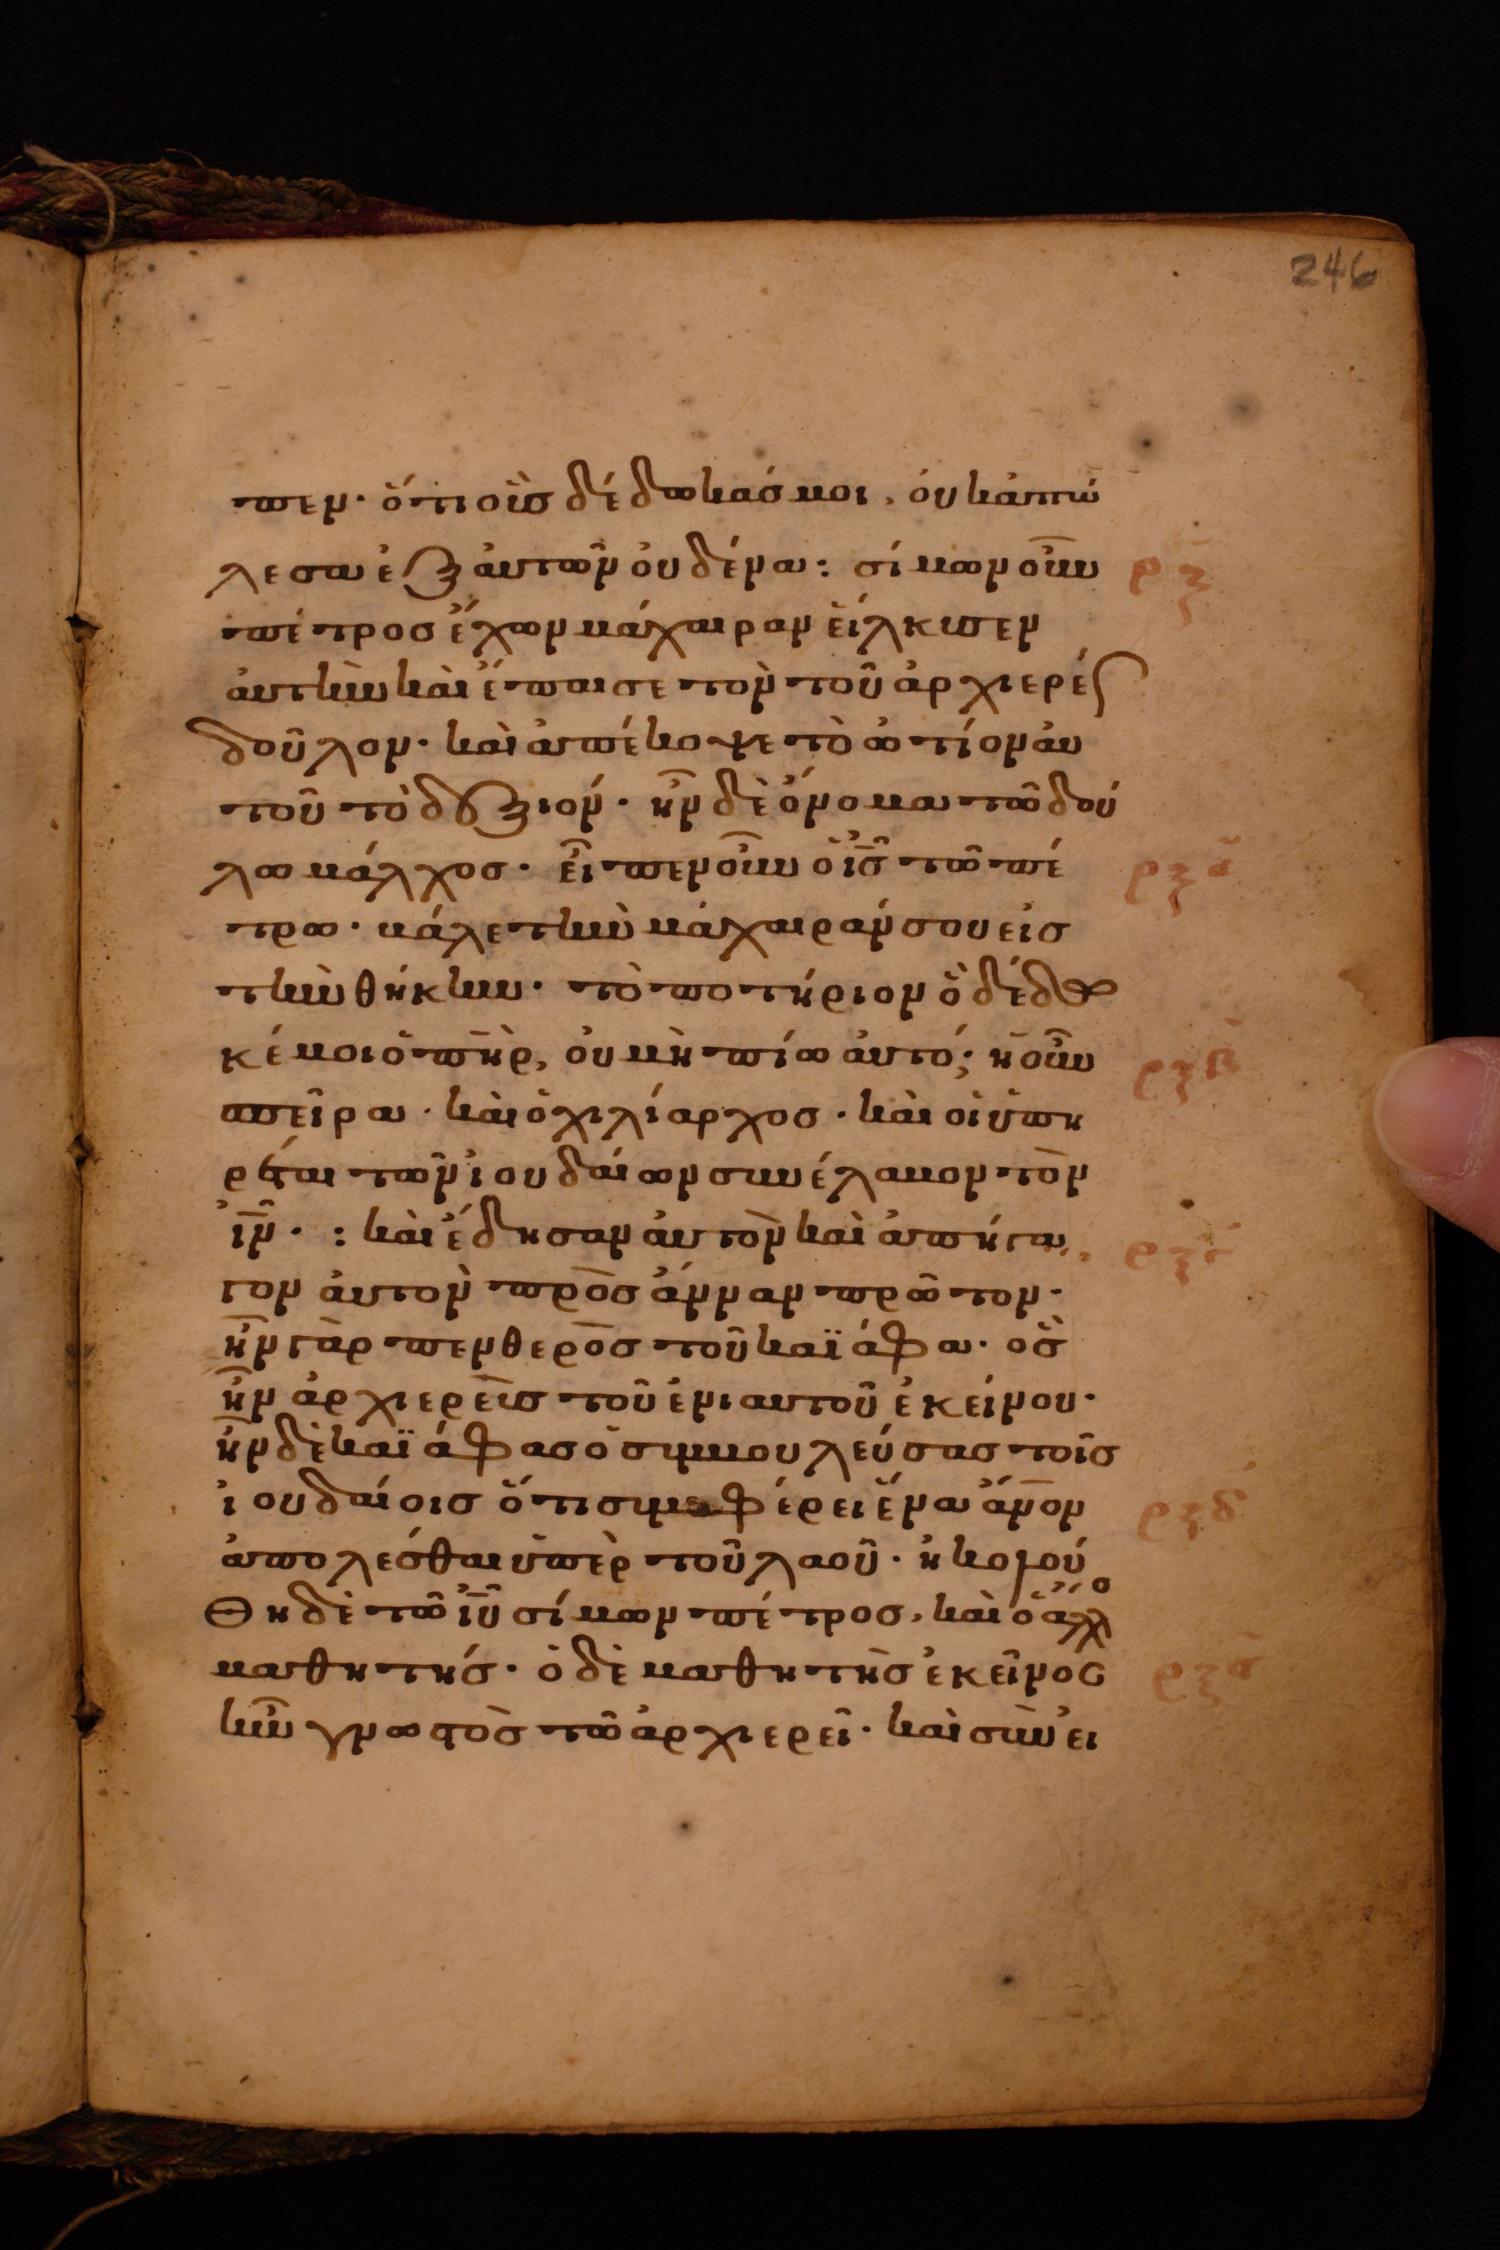 246
πεν· ὅτι οὓς δέδωκάς μοι, οὐκ ἀπώ
λεσα ἐξ αὐτῶν οὐδένα: σίμων οὖν ρξ
πέτρος ἔχων μάχαιραν εἵλκυσεν
αὐτὴν καὶ ἔπαισε τὸν τοῦ ἀρχιερέως
δοῦλον· καὶ ἀπέκοψε τὸ ὠτίον αὐ
τοῦ τὸ δεξιόν· ἦν δὲ ὄνομα τῶ δού
λω μάλχος· εἶπεν οὖν ὁ ις τῶ πέ ρξα
τρω· βάλε τὴν μάχαιράν σου εἰς
τὴν θήκην· τὸ ποτήριον ὃ δέδω
κέ μοι ὁ πηρ, οὐ μὴ πίω αὐτό; ἡ οὖν ρξβ
σπεῖρα· καὶ ὁ χιλίαρχος· καὶ οἱ ὑπη
ρέται τῶν ἰουδαίων συνέλαβον τὸν
ιν· : καὶ ἔδησαν αὐτὸν καὶ ἀπήγα ρξγ
γον αὐτὸν πρὸς ἄνναν πρῶτον·
ἦν γὰρ πενθερὸς τοῦ καϊάφα· ὃς
ἦν ἀρχιερεὺς τοῦ ἐνιαυτοῦ ἐκείνου·
ἦν δὲ καϊάφας ὁ συμβουλεύσας τοῖς
ἰουδαίοις ὅτι συμφέρει ἕνα ἄνον ρξδ
ἀπολέσθαι ὑπὲρ τοῦ λαοῦ· ἠκολού
Θη δὲ τῶ ιυ σίμων πέτρος, καὶ ὁ ἄλλο
μαθητής· ὁ δὲ μαθητὴς ἐκεῖνος ρξε
ἦν γνωστὸς τῶ ἀρχιερεῖ· καὶ συνει